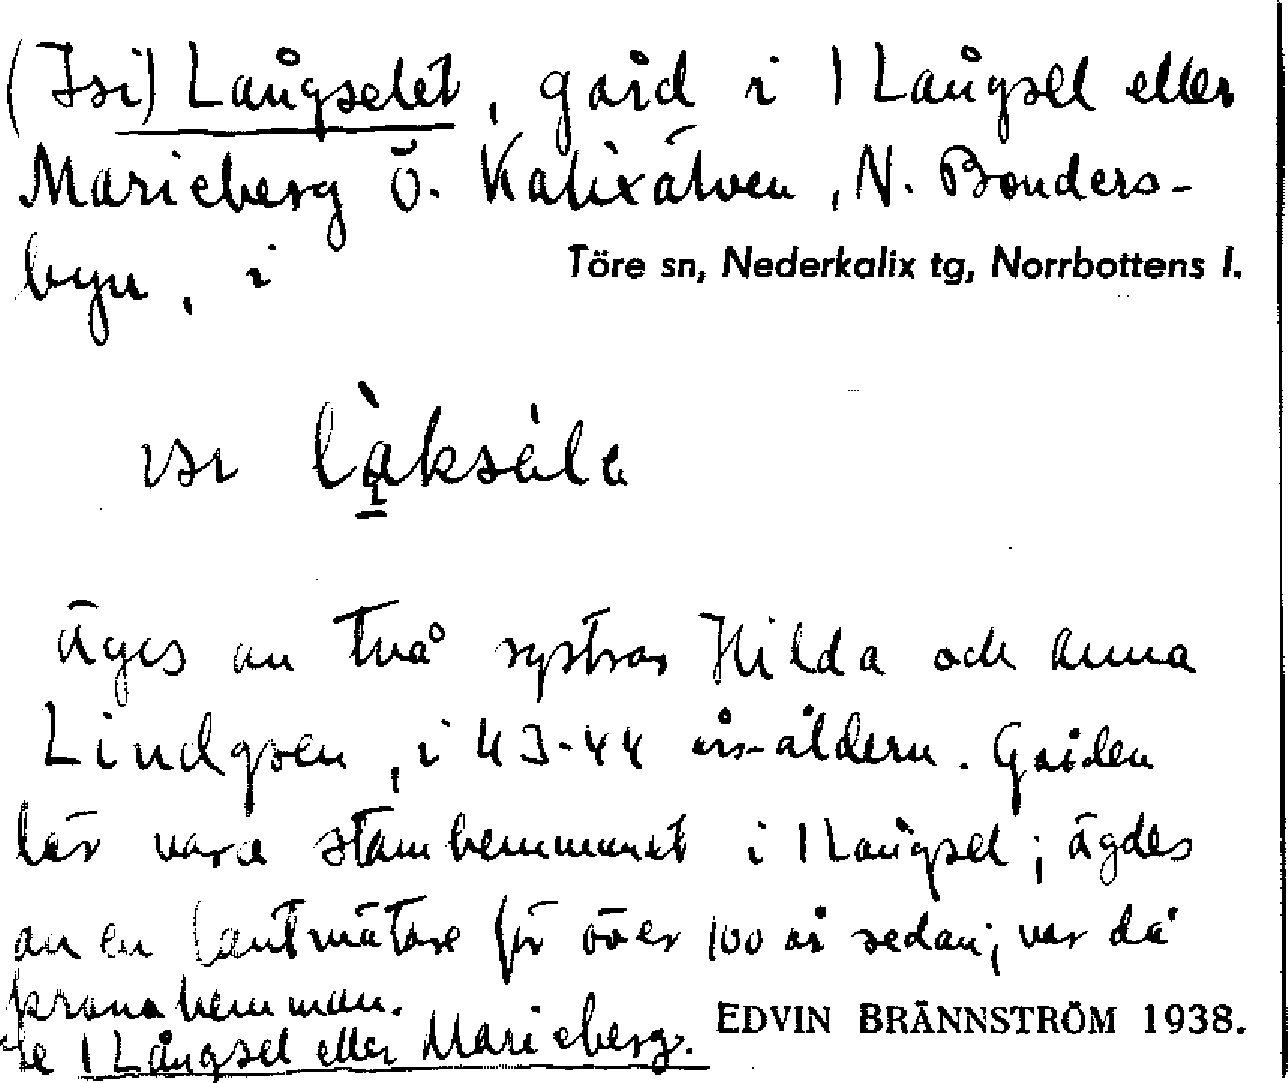 (Isi) Långselet, gård i 1 Långsel eller
Marieberg ö. Kalixälven, N. Bonders-
byn, i Töre sn, Nederkalix tg, Norrbottens l.
ısı
äges av två systrar Hilda och Anna
Lindgren, i 43-44 års-åldern. Gården
lär vara stamhemmanet i 1 Långsel; ägdes
av en lantmätare för över 100 år sedan; var då
kronohemman. EDVIN BRÄNNSTRÖM 1938.
Se 1 Långsel eller Marieberg.